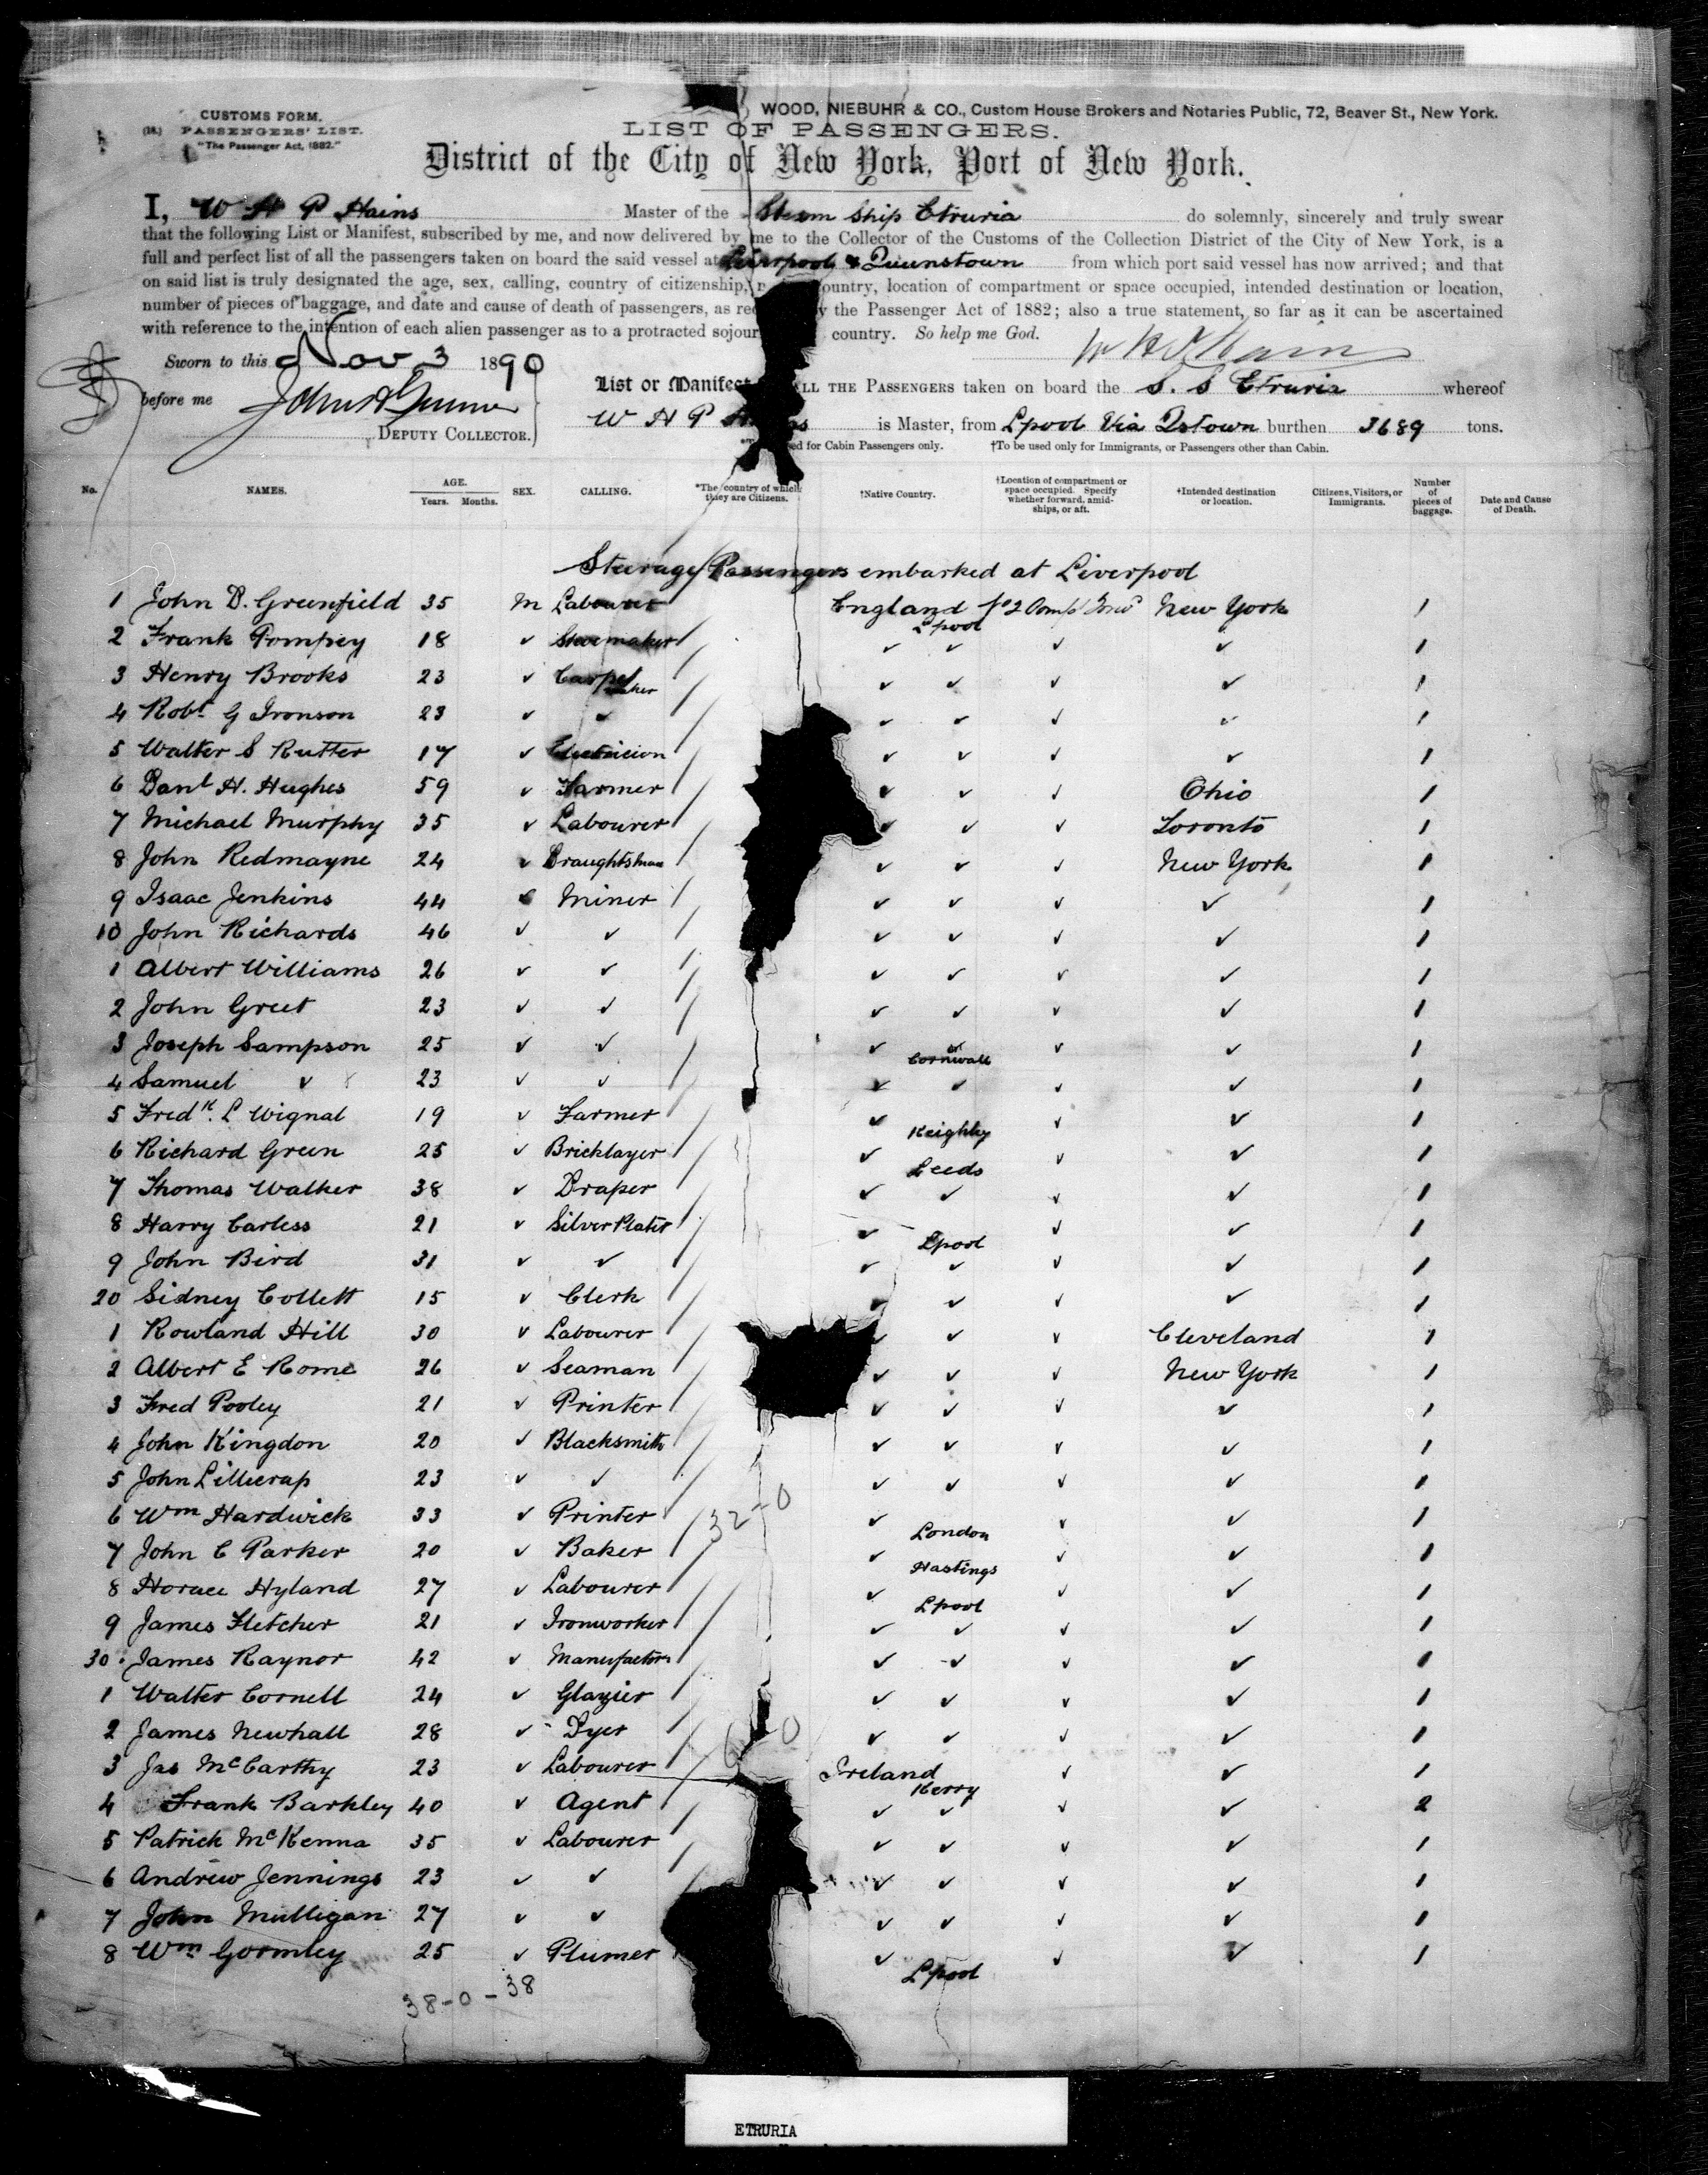 WOOD, NIEBUHR & CO., Custom House Brokers and Notaries Public, 72, Beaver St., New York.
CUSTOMS FORM.
PASSENGERS' LIST.
"The Passenger Act, 1882."
LIST OF PASSENGERS.
District of the City of New York, Port of New York.
I, W H P Hains Master of the Steam Ship Etruria do solemnly, sincerely and truly swear
that the following List or Manifest, subscribed by me, and now delivered by me to the Collector of the Customs of the Collection District of the City of New York, is a
full and perfect list of all the passengers taken on board the said vessel at Liverpool & Queenstown from which port said vessel has now arrived; and that
on said list is truly designated the age, sex, calling, country of citizenship, ountry, location of compartment or space occupied, intended destination or location,
number of pieces of baggage, and date and cause of death of passengers, as re y the Passenger Act of 1882; also a true statement, so far as it can be ascertained
with reference to the intention of each alien passenger as to a protracted sojour country. So help me God.
Sworn to this Nov 3 1890
before me
DEPUTY COLLECTOR.
List or Manifest ALL THE PASSENGERS taken on board the S. S Etruria whereof
W H P is Master, from Lpool Via Qstown burthen 3689 tons.
ed for Cabin Passengers only. †To be used only for Immigrants, or Passengers other than Cabin.
No. NAMES. AGE. Years. Months. SEX. CALLING. *The country of which they are Citizens. †Native Country. †Location of compartment or space occupied. Specify whether forward, amidships, or aft. †Intended destination or location. Citizens, Visitors, or Immigrants. Number of pieces of baggage. Date and Cause of Death.
Steerage Passengers embarked at Liverpool
1 John D. Greenfield 35 M Labourer England Lpool No 2 Comp New York 1
2 Frank Pompey 18 ✓ Shoemaker ✓ ✓ ✓ ✓ 1
3 Henry Brooks 23 ✓ Carpet maker ✓ ✓ ✓ ✓ 1
4 Robt G Ironson 23 ✓ ✓ ✓ ✓ ✓ ✓ 1
5 Walter S Rutter 17 ✓ Electricion ✓ ✓ ✓ ✓ 1
6 Danl H. Hughes 59 ✓ Farmer ✓ ✓ ✓ Ohio 1
7 Michael Murphy 35 ✓ Labourer ✓ ✓ ✓ Toronto 1
8 John Redmayne 24 ✓ Draughtsman ✓ ✓ ✓ New York 1
9 Isaac Jenkins 44 ✓ Miner ✓ ✓ ✓ ✓ 1
10 John Richards 46 ✓ ✓ ✓ ✓ ✓ ✓ 1
1 Albert Williams 26 ✓ ✓ ✓ ✓ ✓ ✓ 1
2 John Greet 23 ✓ ✓ ✓ ✓ ✓ ✓ 1
3 Joseph Sampson 25 ✓ ✓ ✓ Cornwall ✓ ✓ 1
4 Samuel ✓ 23 ✓ ✓ ✓ ✓ ✓ 1
5 Fredk. L Wignal 19 ✓ Farmer ✓ Keighly ✓ ✓ 1
6 Richard Green 25 ✓ Bricklayer ✓ Leeds ✓ ✓ 1
7 Thomas Walker 38 ✓ Draper ✓ ✓ ✓ ✓ 1
8 Harry Carless 21 ✓ Silver Plater ✓ Lpool ✓ ✓ 1
9 John Bird 31 ✓ ✓ ✓ ✓ ✓ ✓ 1
20 Sidney Collett 15 ✓ Clerk ✓ ✓ ✓ ✓ 1
1 Rowland Hill 30 ✓ Labourer ✓ ✓ ✓ Cleveland 1
2 Albert E Rome 26 ✓ Seaman ✓ ✓ ✓ New York 1
3 Fred Pooley 21 ✓ Printer ✓ ✓ ✓ ✓ 1
4 John Kingdon 20 ✓ Blacksmith ✓ ✓ ✓ ✓ 1
5 John Lillicrap 23 ✓ ✓ ✓ ✓ ✓ ✓ 1
6 Wm Hardwick 33 ✓ Printer 32-0 ✓ London ✓ ✓ 1
7 John C Parker 20 ✓ Baker ✓ Hastings ✓ ✓ 1
8 Horace Hyland 27 ✓ Labourer ✓ Lpool ✓ ✓ 1
9 James Fletcher 21 ✓ Ironworker ✓ ✓ ✓ ✓ 1
30 James Raynor 42 ✓ Manufactor ✓ ✓ ✓ ✓ 1
1 Walter Cornell 24 ✓ Glazier ✓ ✓ ✓ ✓ 1
2 James Newhall 28 ✓ Dyer 6-0 ✓ ✓ ✓ ✓ 1
3 Jas McCarthy 23 ✓ Labourer Ireland Kerry ✓ ✓ 1
4 Frank Barkley 40 ✓ Agent ✓ ✓ ✓ ✓ 2
5 Patrick McKenna 35 ✓ Labourer ✓ ✓ ✓ ✓ 1
6 Andrew Jennings 23 ✓ ✓ ✓ ✓ ✓ ✓ 1
7 John Mulligan 27 ✓ ✓ ✓ ✓ ✓ ✓ 1
8 Wm Gormley 25 ✓ Plumer ✓ Lpool ✓ ✓ 1
38-0-38
ETRURIA